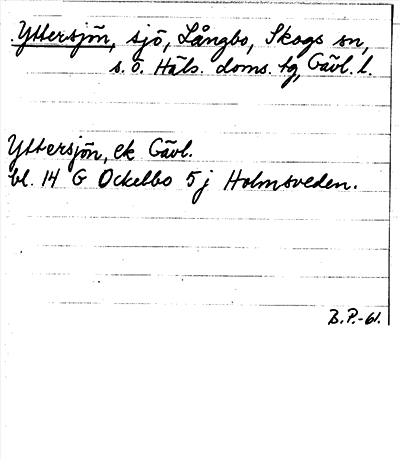 Yttersjön, sjö, Långbo, Skogs sn,
s. ö. Häls. doms. tg, Gävl. l.
Yttersjön, ek Gävl.
bl. 14 G Ockelbo 5 j Holmsveden.
B.P.-61.